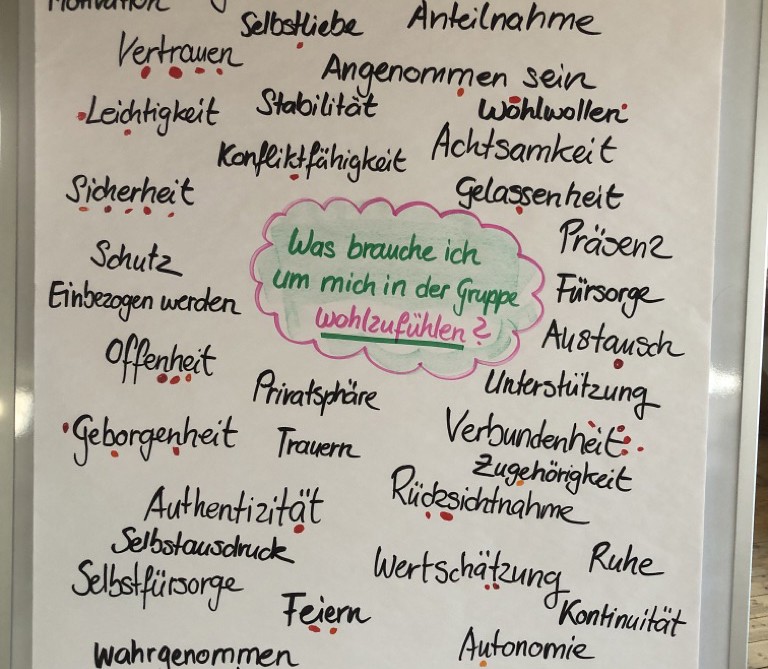 Motivation
Selbstliebe
Anteilnahme
Vertrauen
Angenommen sein
Leichtigkeit
Stabilität
Wohlwollen
Konfliktfähigkeit
Achtsamkeit
Sicherheit
Gelassenheit
Was brauche ich
um mich in der Gruppe
wohlzufühlen?
Präsenz
Schutz
Fürsorge
Einbezogen werden
Austausch
Offenheit
Privatsphäre
Unterstützung
Geborgenheit
Trauern
Verbundenheit
Zugehörigkeit
Rücksichtnahme
Authentizität
Selbstausdruck
Wertschätzung
Ruhe
Selbstfürsorge
Feiern
Kontinuität
wahrgenommen
Autonomie